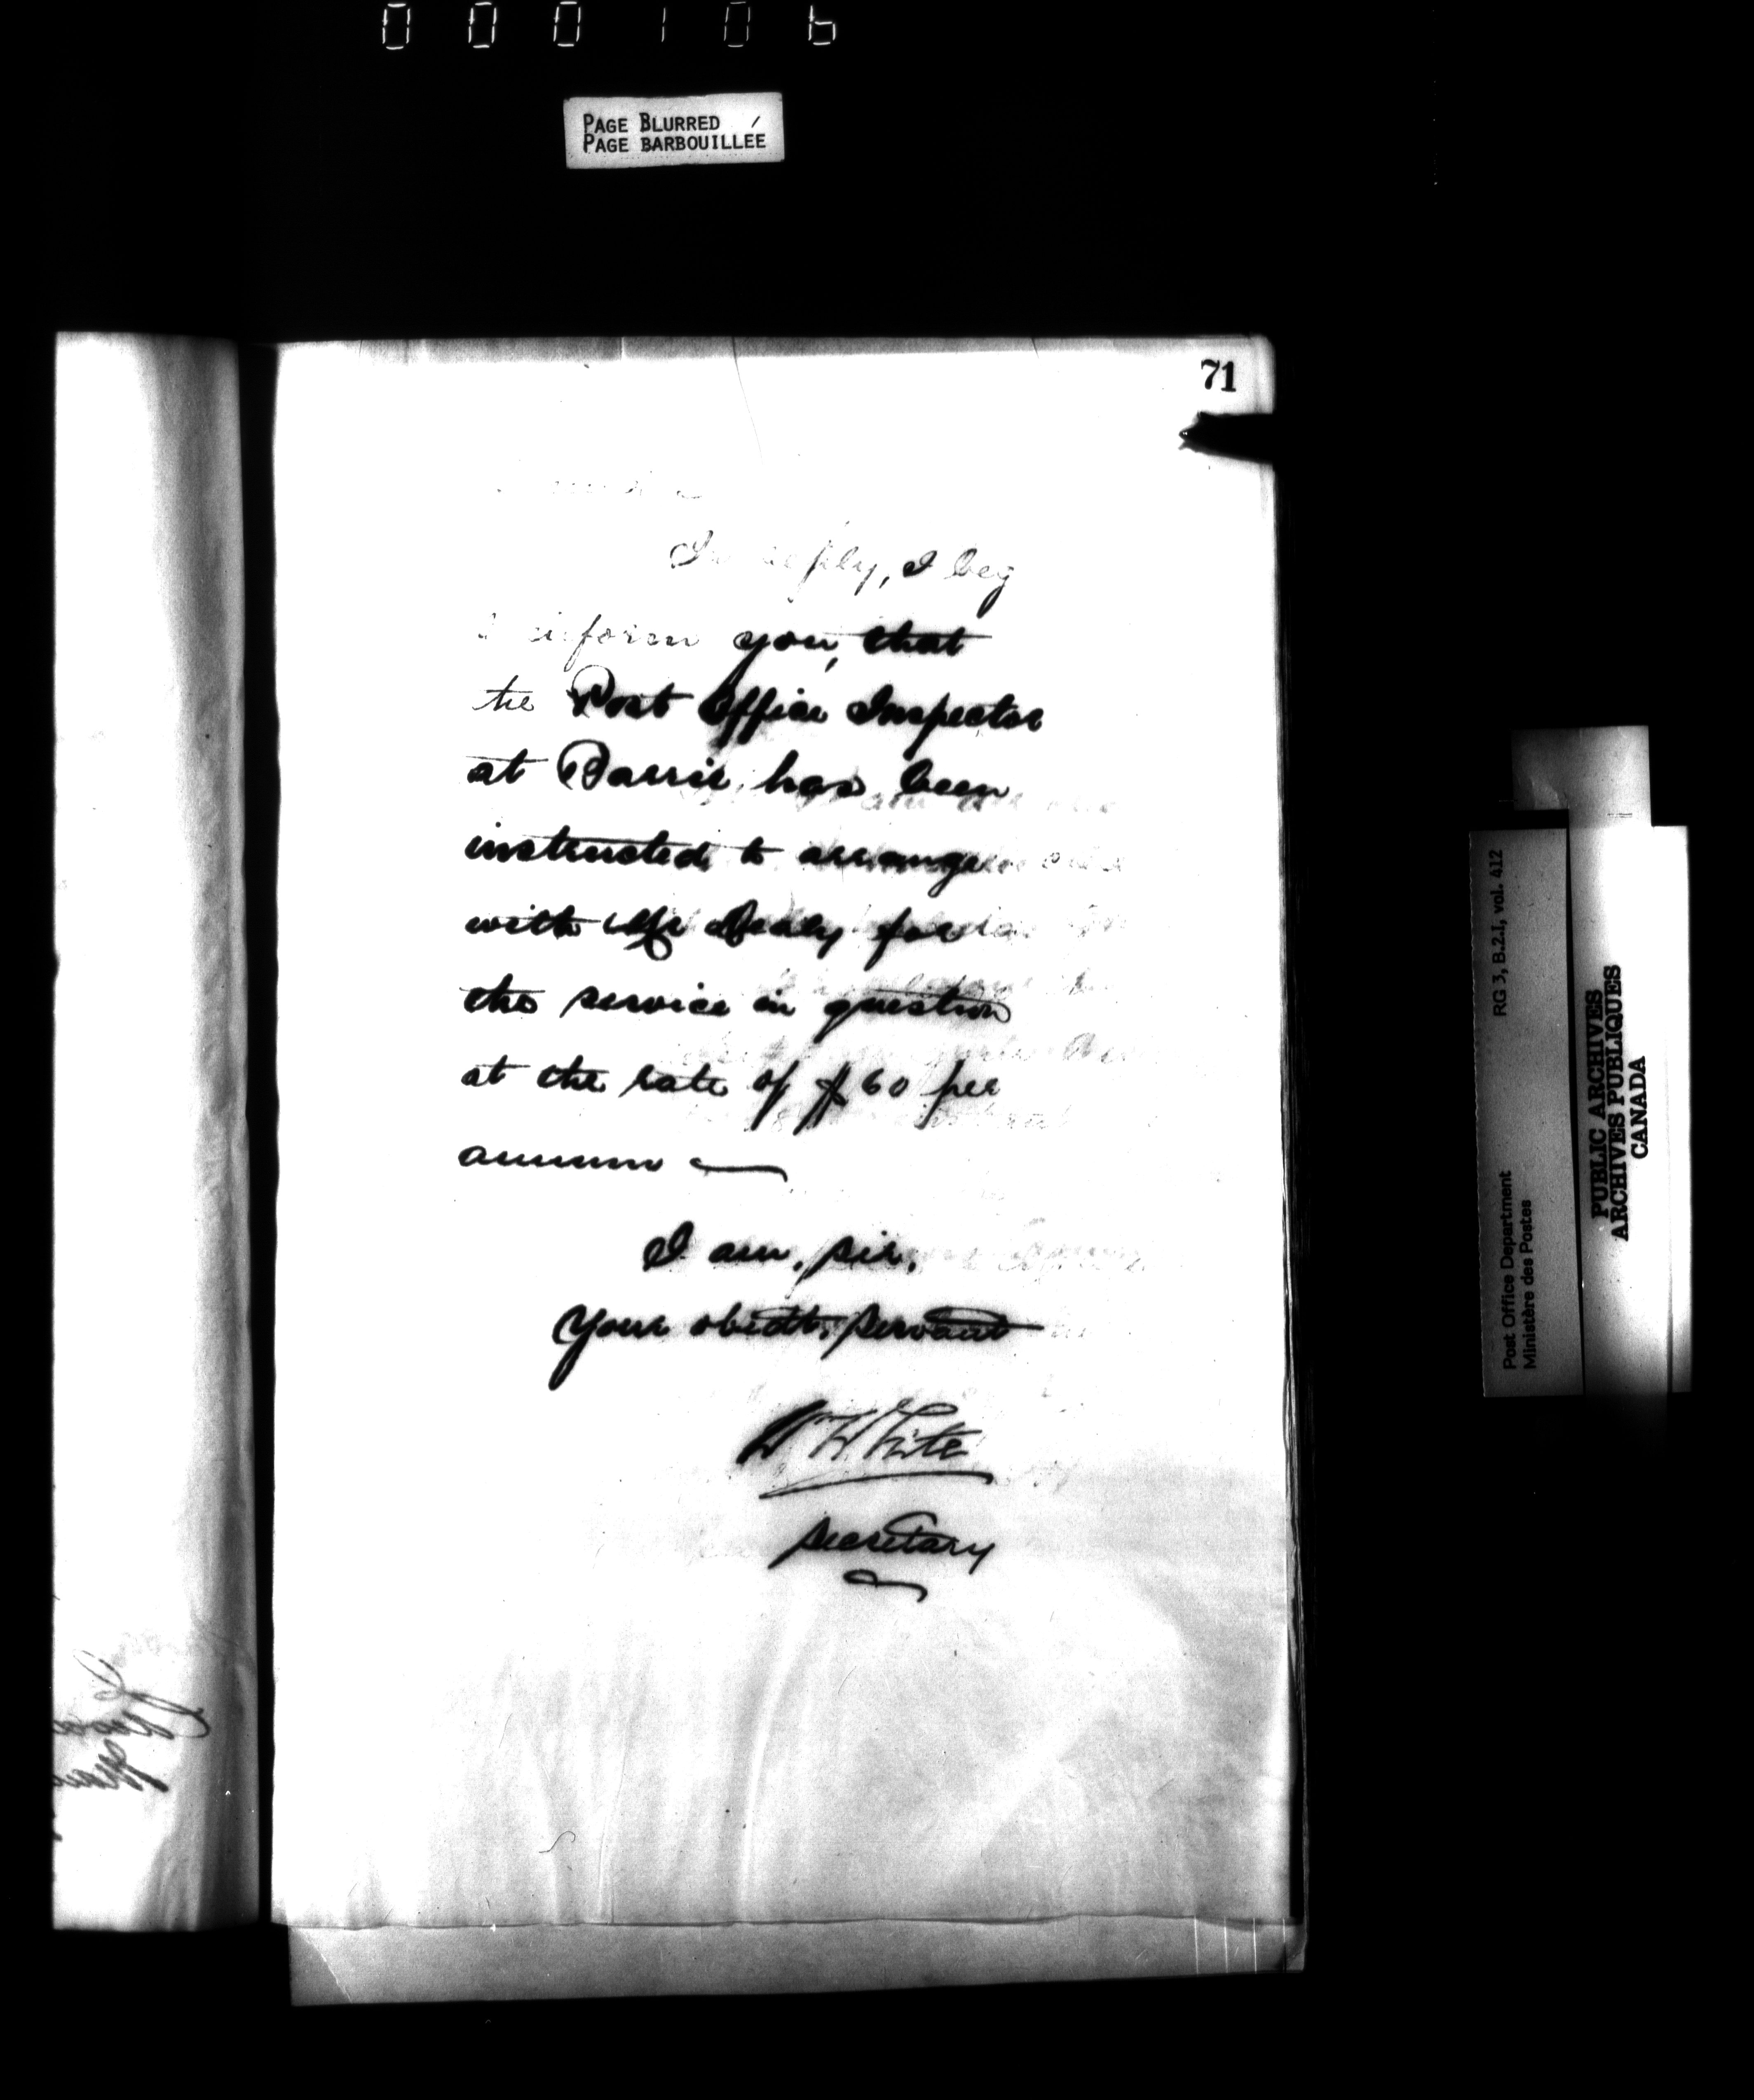 000106
PAGE BLURRED
PAGE BARBOUILLÉE
71
In reply, I beg
inform you, that
the Post Office Inspector
at Barrie, has been
instructed to arrange
with Mr for
the service in question
at the rate of $60 per
annum
I am, sir,
Your obedt. servant
W White
Secretary
RG 3, B.2.I, vol. 412
Post Office Department
Ministère des Postes
PUBLIC ARCHIVES
ARCHIVES PUBLIQUES
CANADA